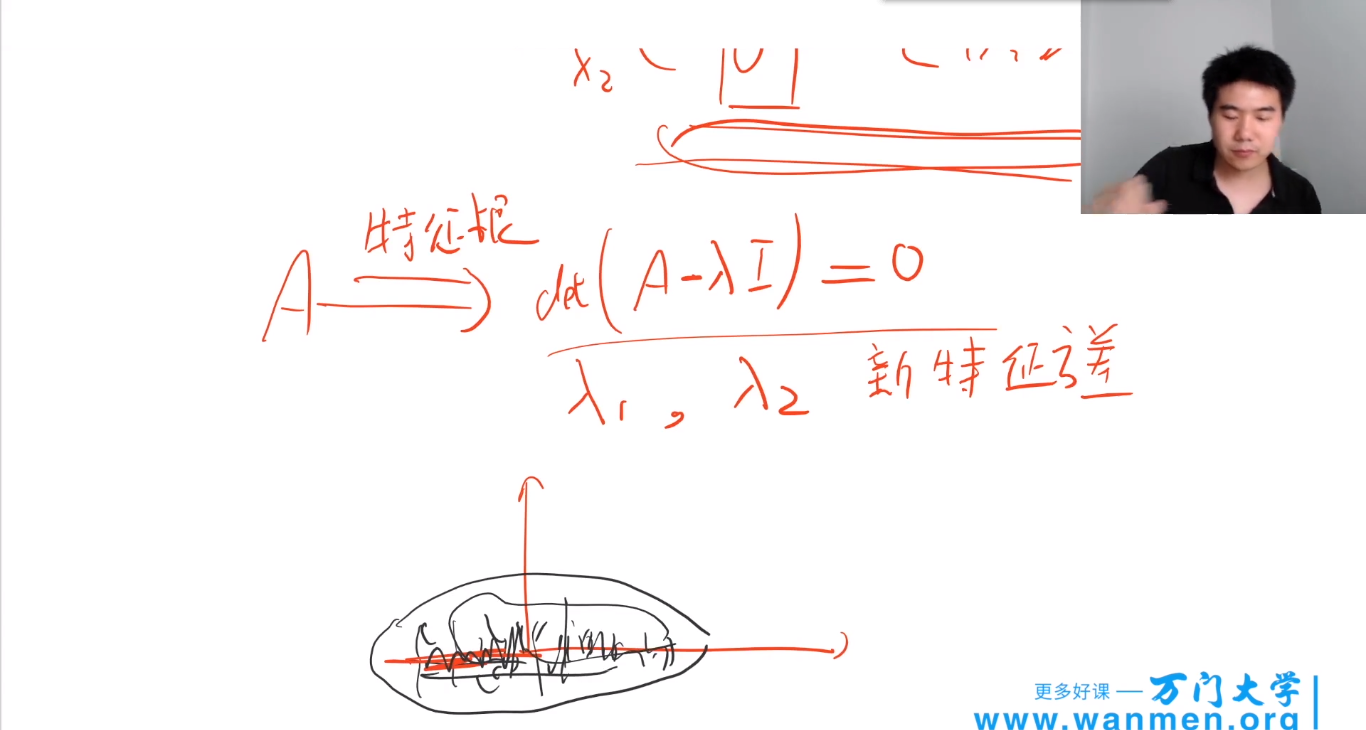 x₂
A 特征根 det(A-λI)=0
λ₁, λ₂ 新特征方差
更多好课 — 万门大学
www.wanmen.org